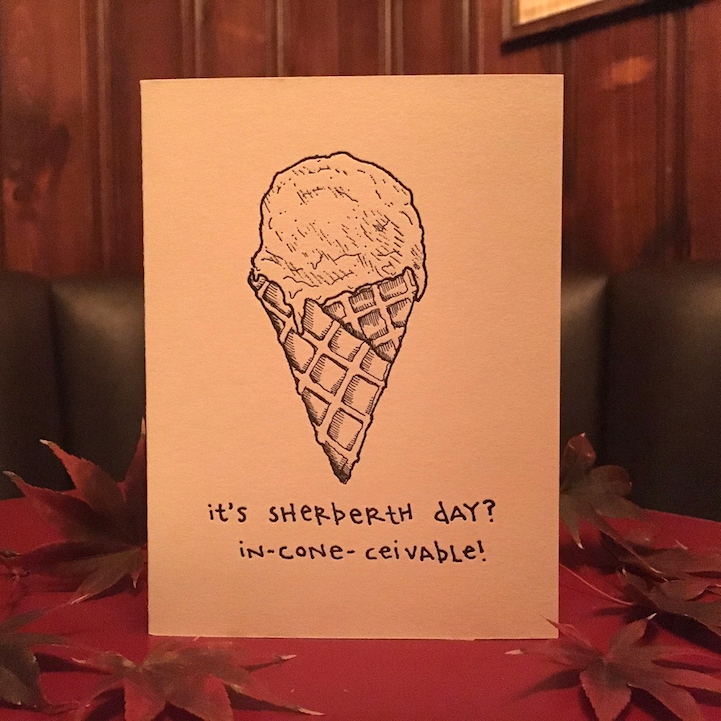 it's SHERBERTH DAY?
in-CONE-ceivable!